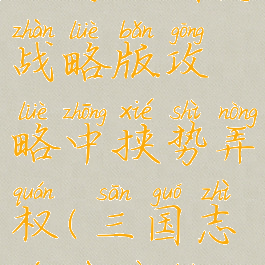 zhàn lüè bǎn gōng
战略版攻
lüè zhōng xié shì nòng
略中挟势弄
quán sān guó zhì
权(三国志